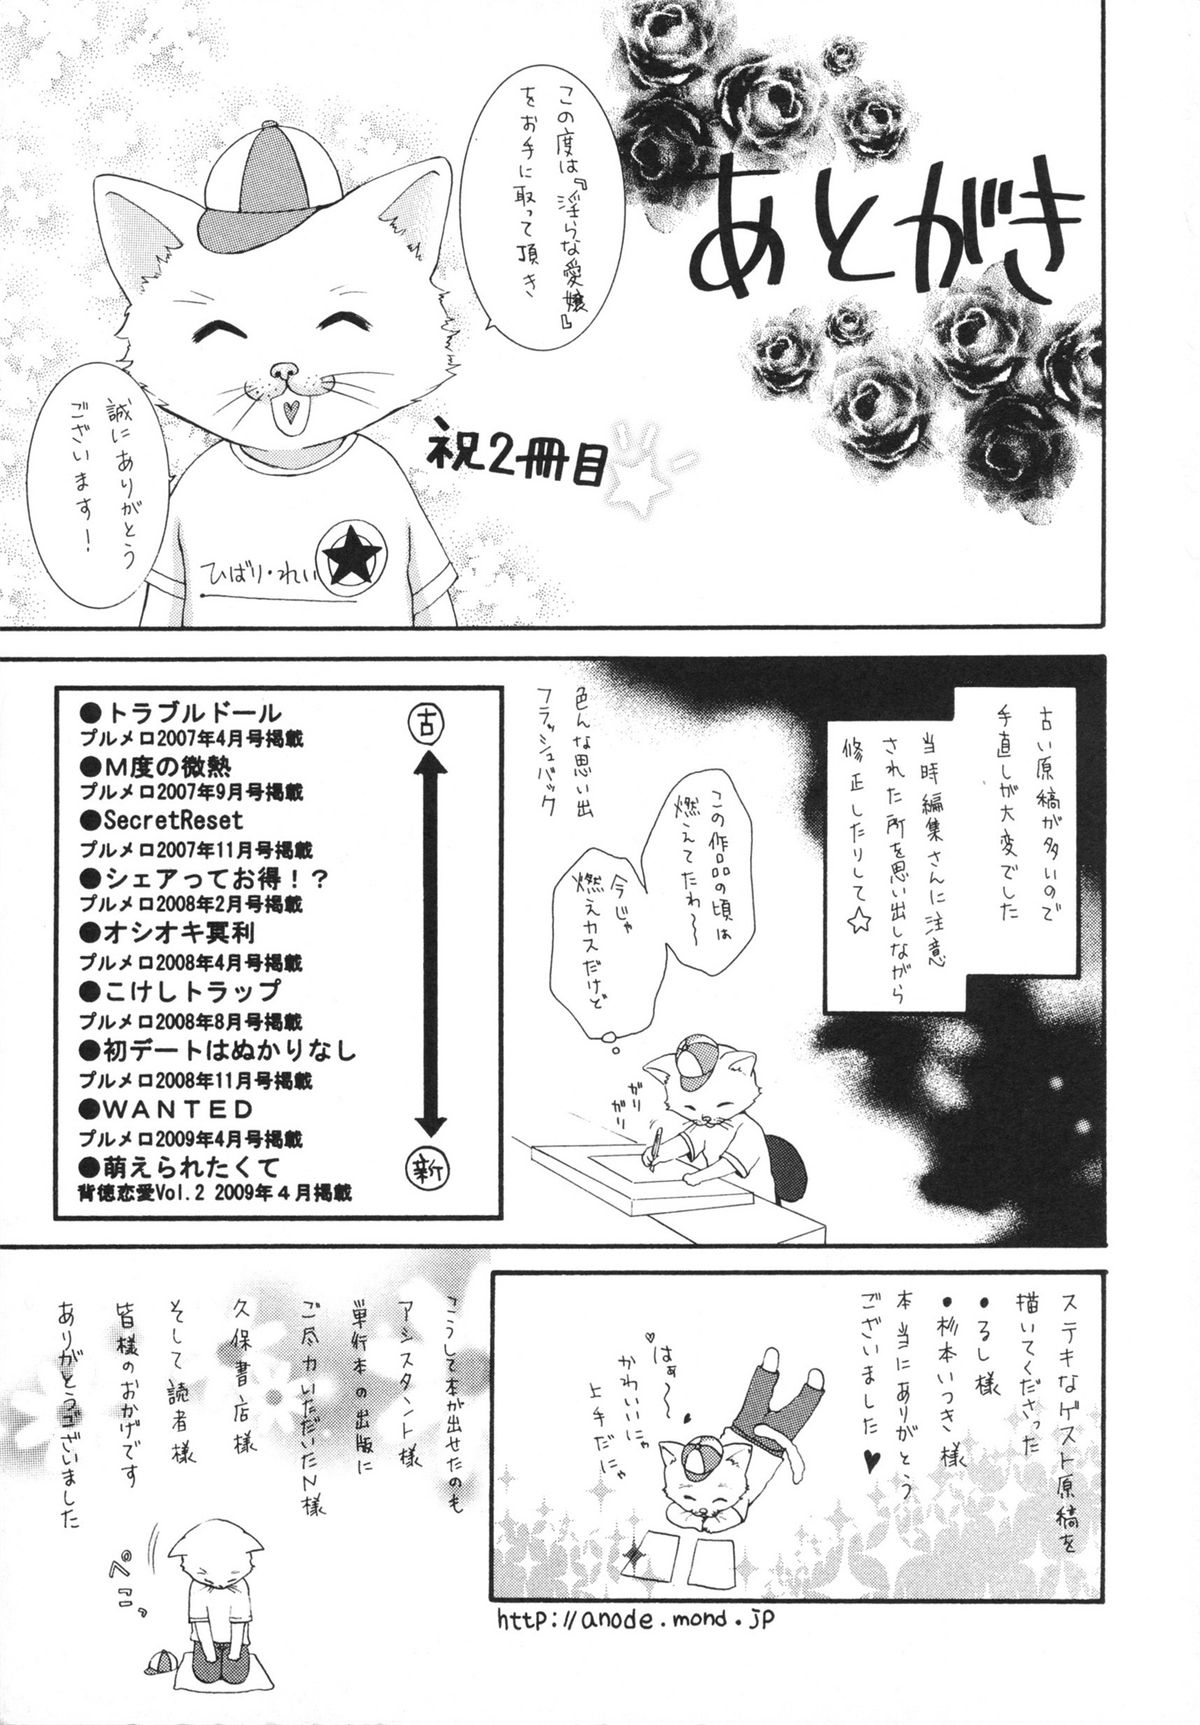 あとがき
この度は『淫らな愛嬢』
をお手に取って頂き
誠にありがとう
ございます！
祝2冊目
ひばり・れい
古い原稿が多いので
手直しが大変でした
当時編集さんに注意
された所を思い出しながら
修正したりして☆
色んな思い出
フラッシュバック
この作品の頃は
燃えてたわ～
今じゃ
燃えカスだけど
ガリガリ
古
●トラブルドール
プルメロ2007年4月号掲載
●Ｍ度の微熱
プルメロ2007年9月号掲載
●SecretReset
プルメロ2007年11月号掲載
●シェアってお得！？
プルメロ2008年2月号掲載
●オシオキ冥利
プルメロ2008年4月号掲載
●こけしトラップ
プルメロ2008年8月号掲載
●初デートはぬかりなし
プルメロ2008年11月号掲載
●ＷＡＮＴＥＤ
プルメロ2009年4月号掲載
●萌えられたくて
背徳恋愛Vol.2 2009年４月掲載
新
ステキなゲスト原稿を
描いてくださった
●るし様
●杉本いつき様
本当にありがとう
ございました♥
はぁ～
かわいいにゃ
上手だにゃ
http://anode.mond.jp
こうして本が出せたのも
アシスタント様
単行本の出版に
ご尽力いただいたN様
久保書店様
そして読者様
皆様のおかげです
ありがとうございました
ぺこっ